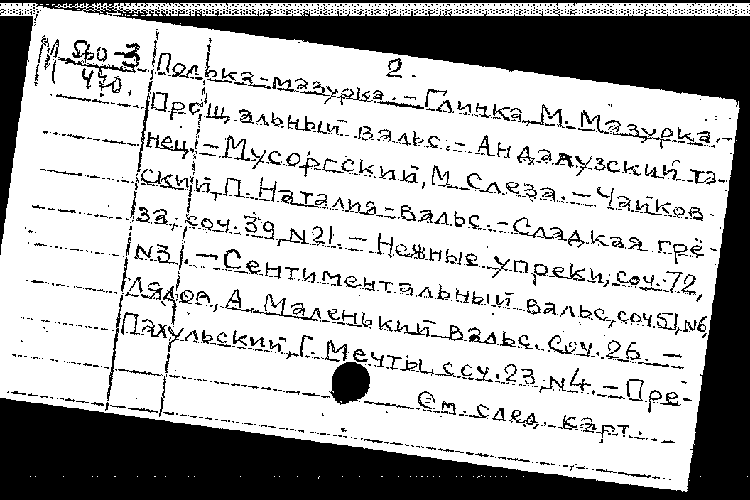 2.
М 560-3
470.
Полька-мазурка. – Глинка, М. Мазурка. –
Прощальный вальс. – Андалузский та-
нец. – Мусоргский, М. Слеза. – Чайков-
ский, П. Наталия-вальс. – Сладкая грё-
за, соч. 39, N21. – Нежные упреки, соч. 72,
N3. – Сентиментальный вальс, соч. 51, N6
Лядов, А. Маленький вальс. Соч. 26. –
Пахульский, Г. Мечты, соч. 23, N4. – Пре-
См. след. карт.